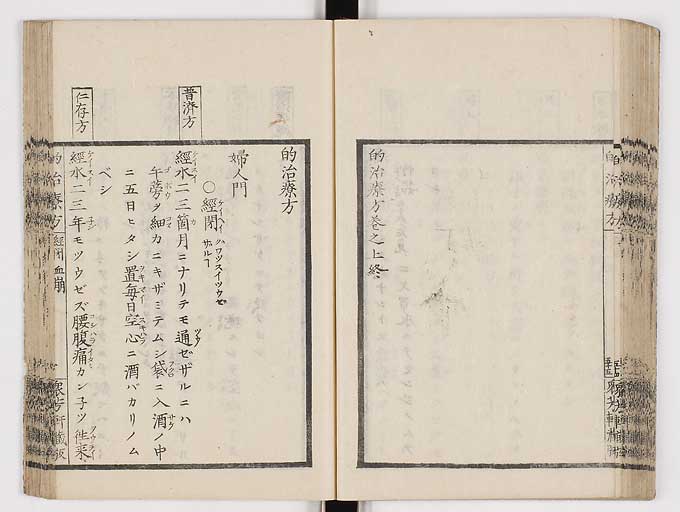 的治療方巻之上終
的治療方
婦人門
○經閉
普濟方
經水二三箇月ニナリテモ通ゼザルニハ
牛蒡ヲ細カニキザミテムシ袋ニ入酒ノ中
ニ五日ヒタシ置毎日空心ニ酒バカリノム
ベシ
仁存方
經水二三年モツウゼズ腰腹痛カン子ツ徃来
的治療方
經閉 血崩